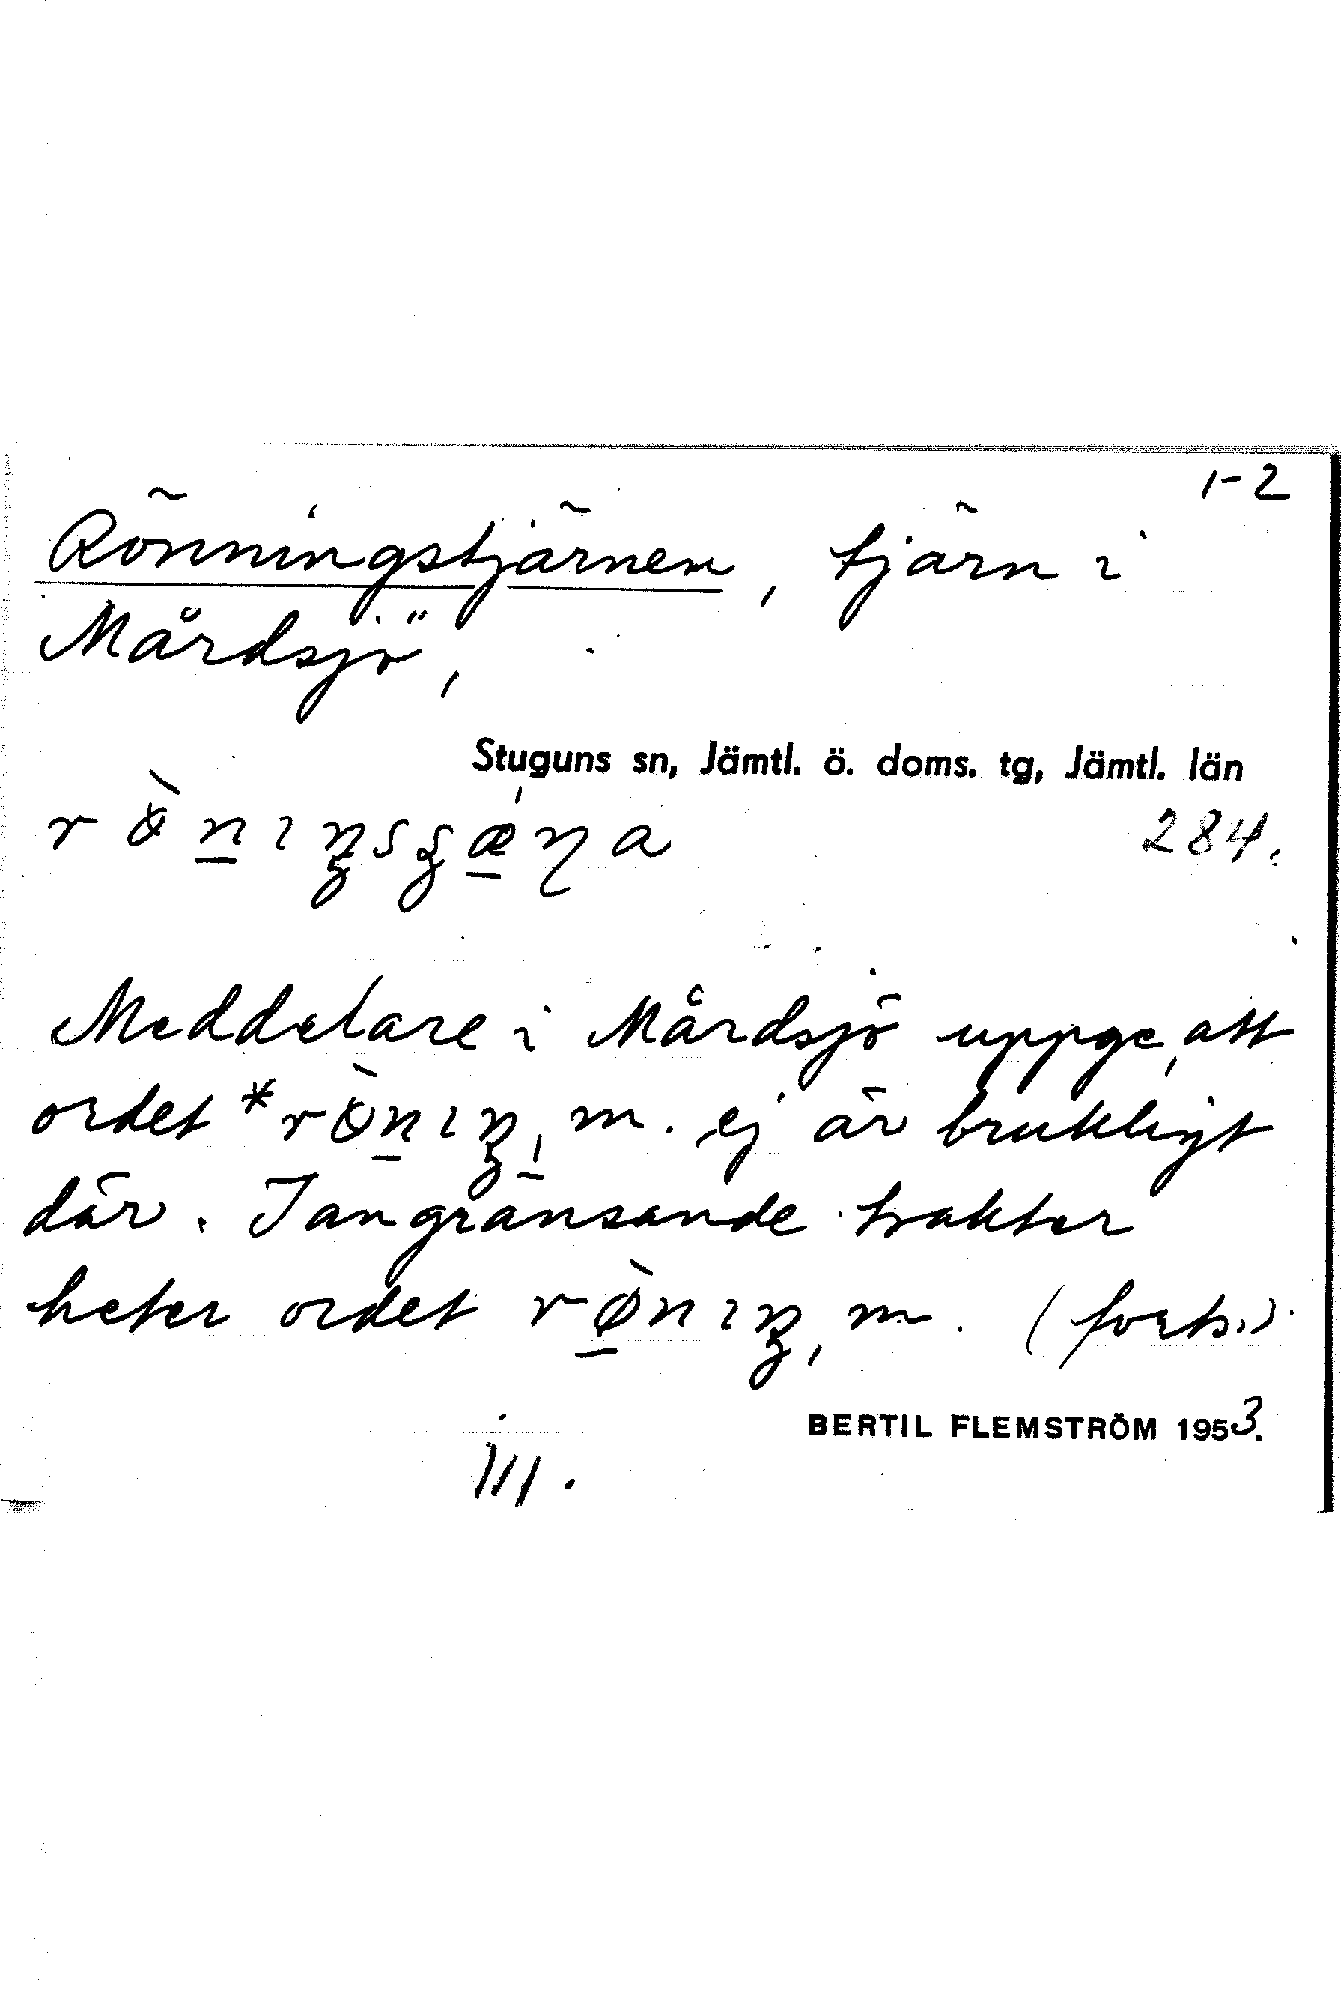 1-2
Rönningstjärnen, tjärn i
Mårdsjö,
Stuguns sn, Jämtl. ö. doms. tg, Jämtl. län
284.
Meddelare i Mårdsjö uppge, att
ordet m. ej är brukligt
där. I angränsande trakter
heter ordet m. (forts.)
BERTIL FLEMSTRÖM 1953.